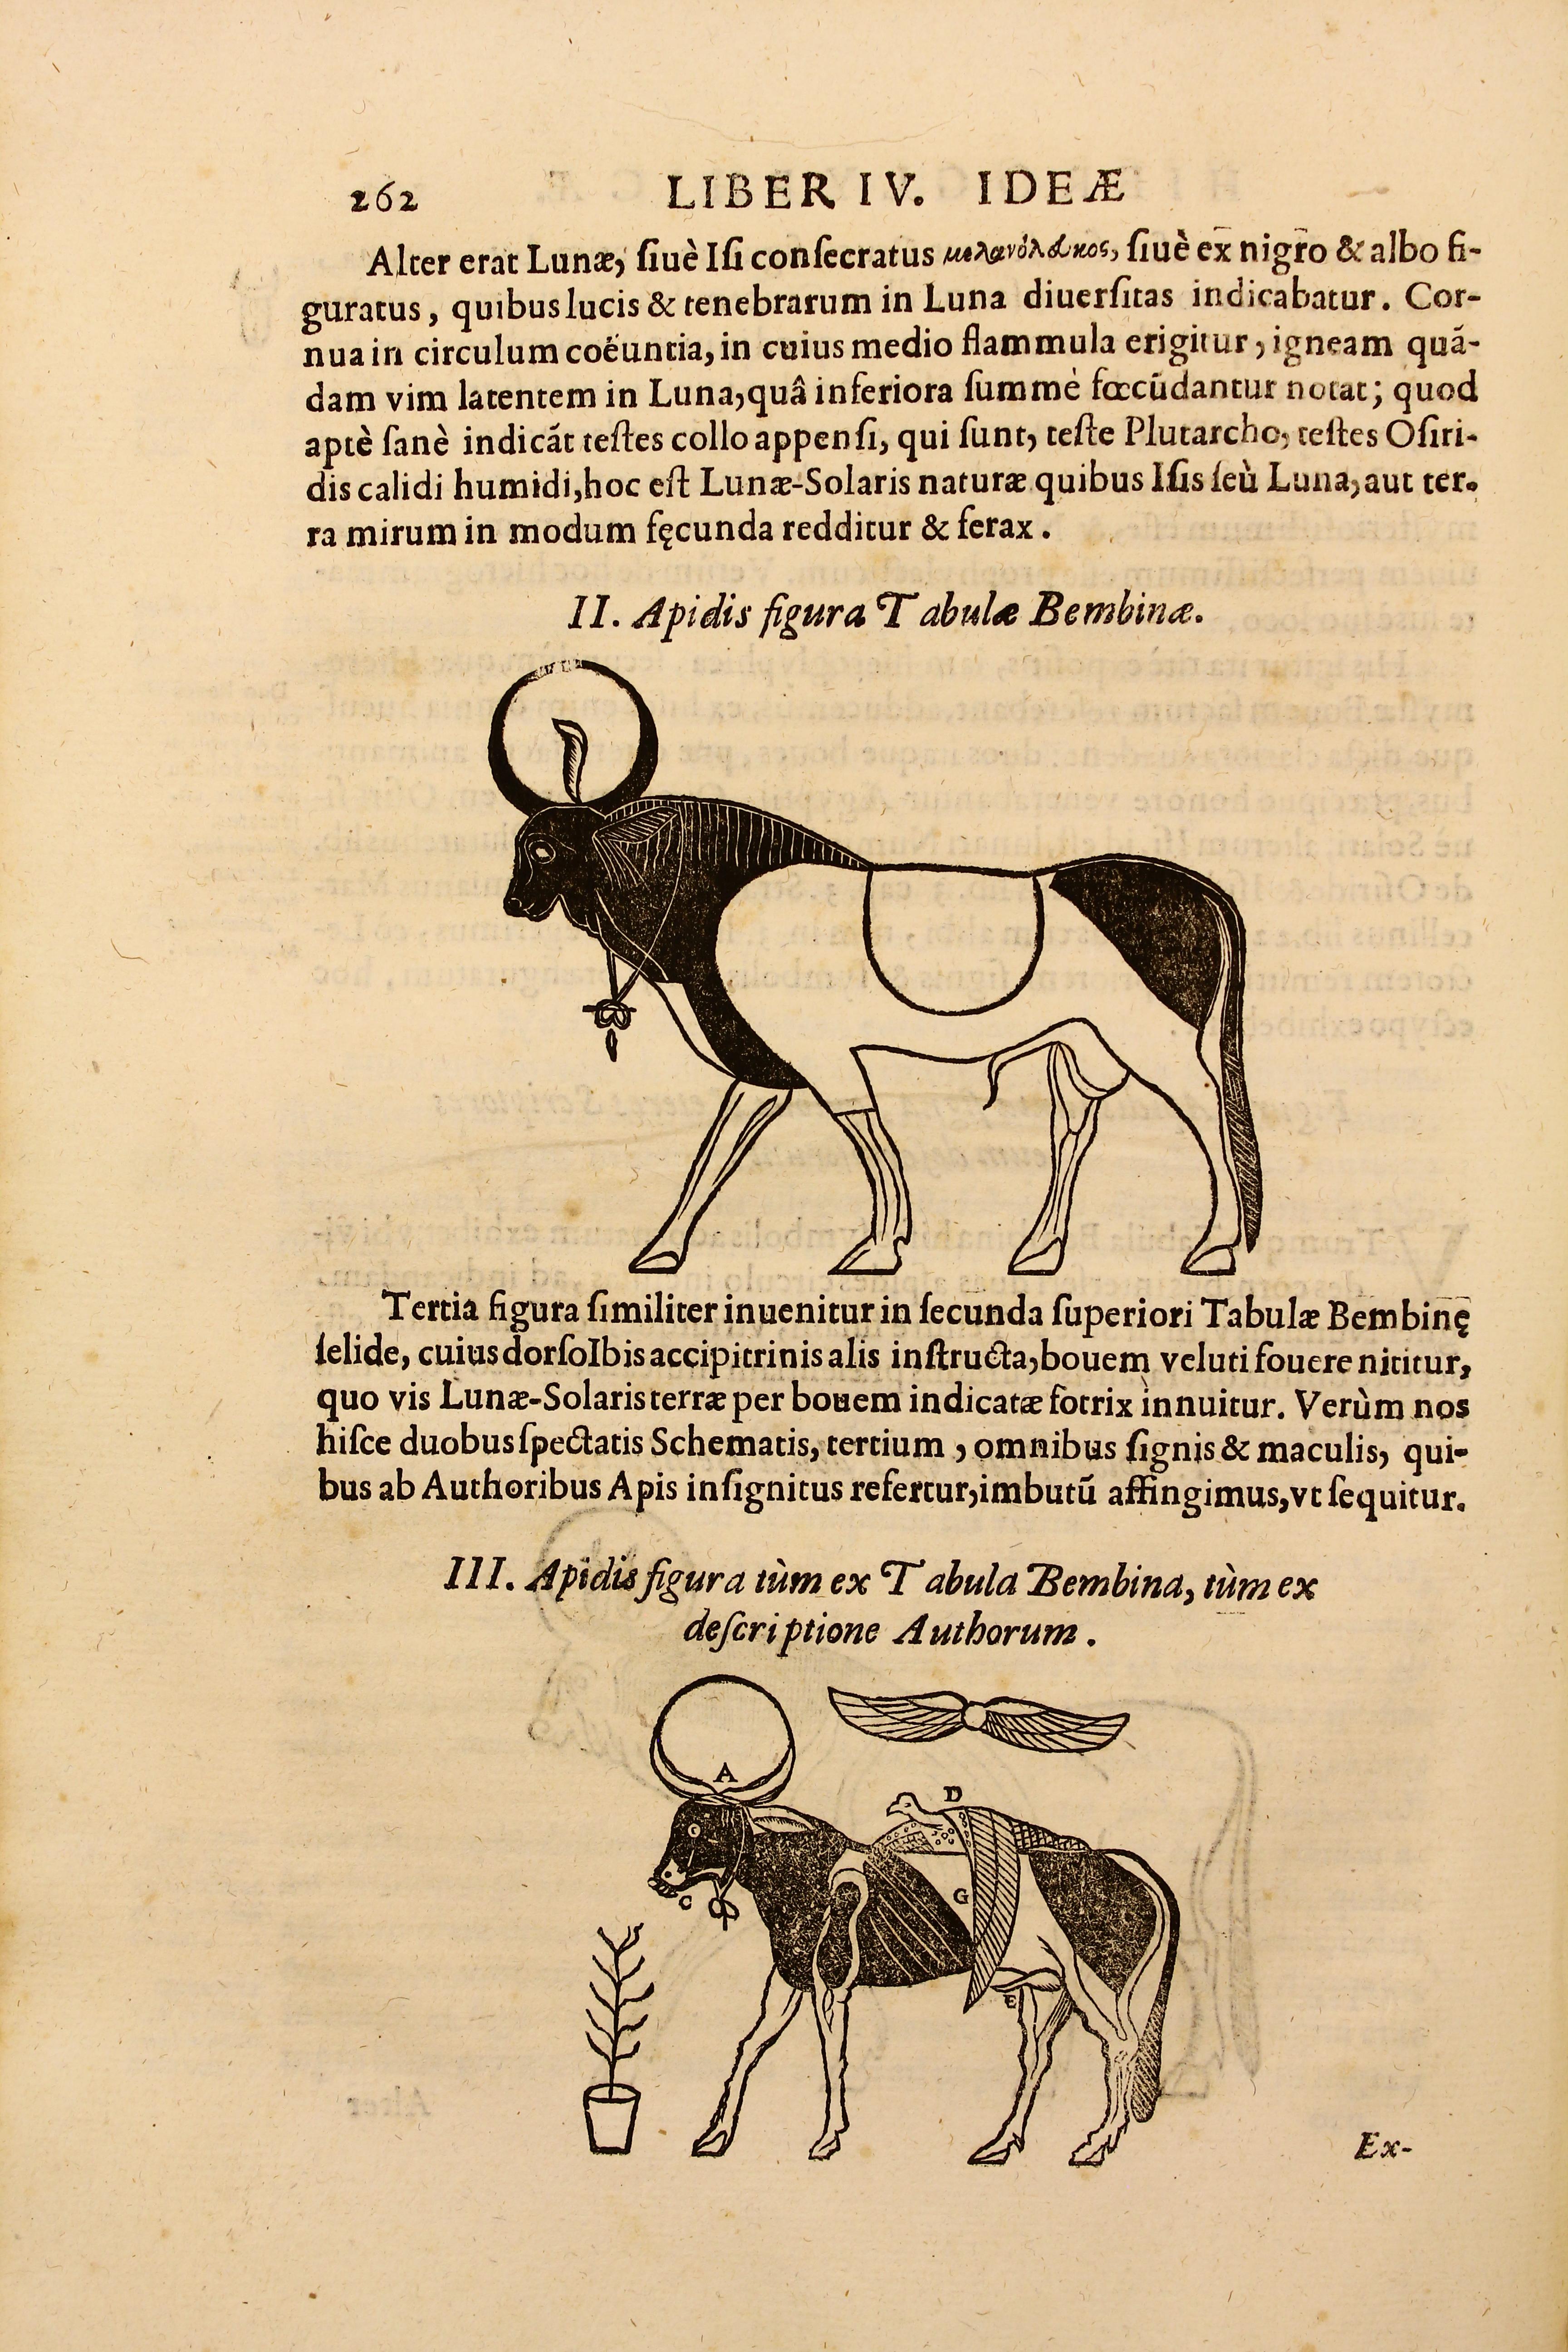 262 LIBER IV. IDEÆ
Alter erat Lunæ, ſiuè Iſi conſecratus μελανόλδκος, ſiuè ex nigro & albo fi-
guratus, quibus lucis & tenebrarum in Luna diuerſitas indicabatur. Cor-
nua in circulum coëuntia, in cuius medio flammula erigitur, igneam quã-
dam vim latentem in Luna, quâ inferiora ſummè fœcũdantur notat; quod
aptè ſanè indicãt teſtes collo appenſi, qui ſunt, teſte Plutarcho, teſtes Oſiri-
dis calidi humidi, hoc eſt Lunæ-Solaris naturæ quibus Iſis ſeù Luna, aut ter-
ra mirum in modum fęcunda redditur & ferax.
II. Apidis figura Tabulæ Bembinæ.
Tertia figura ſimiliter inuenitur in ſecunda ſuperiori Tabulæ Bembinę
ſelide, cuius dorſo Ibis accipitrinis alis inſtructa, bouem veluti fouere nititur,
quo vis Lunæ-Solaris terræ per bouem indicatæ fotrix innuitur. Verùm nos
hiſce duobus ſpectatis Schematis, tertium, omnibus ſignis & maculis, qui-
bus ab Authoribus Apis inſignitus refertur, imbutũ affingimus, vt ſequitur.
III. Apidis figura tùm ex Tabula Bembina, tùm ex
deſcriptione Authorum.
A
D
C
G
E
Ex-